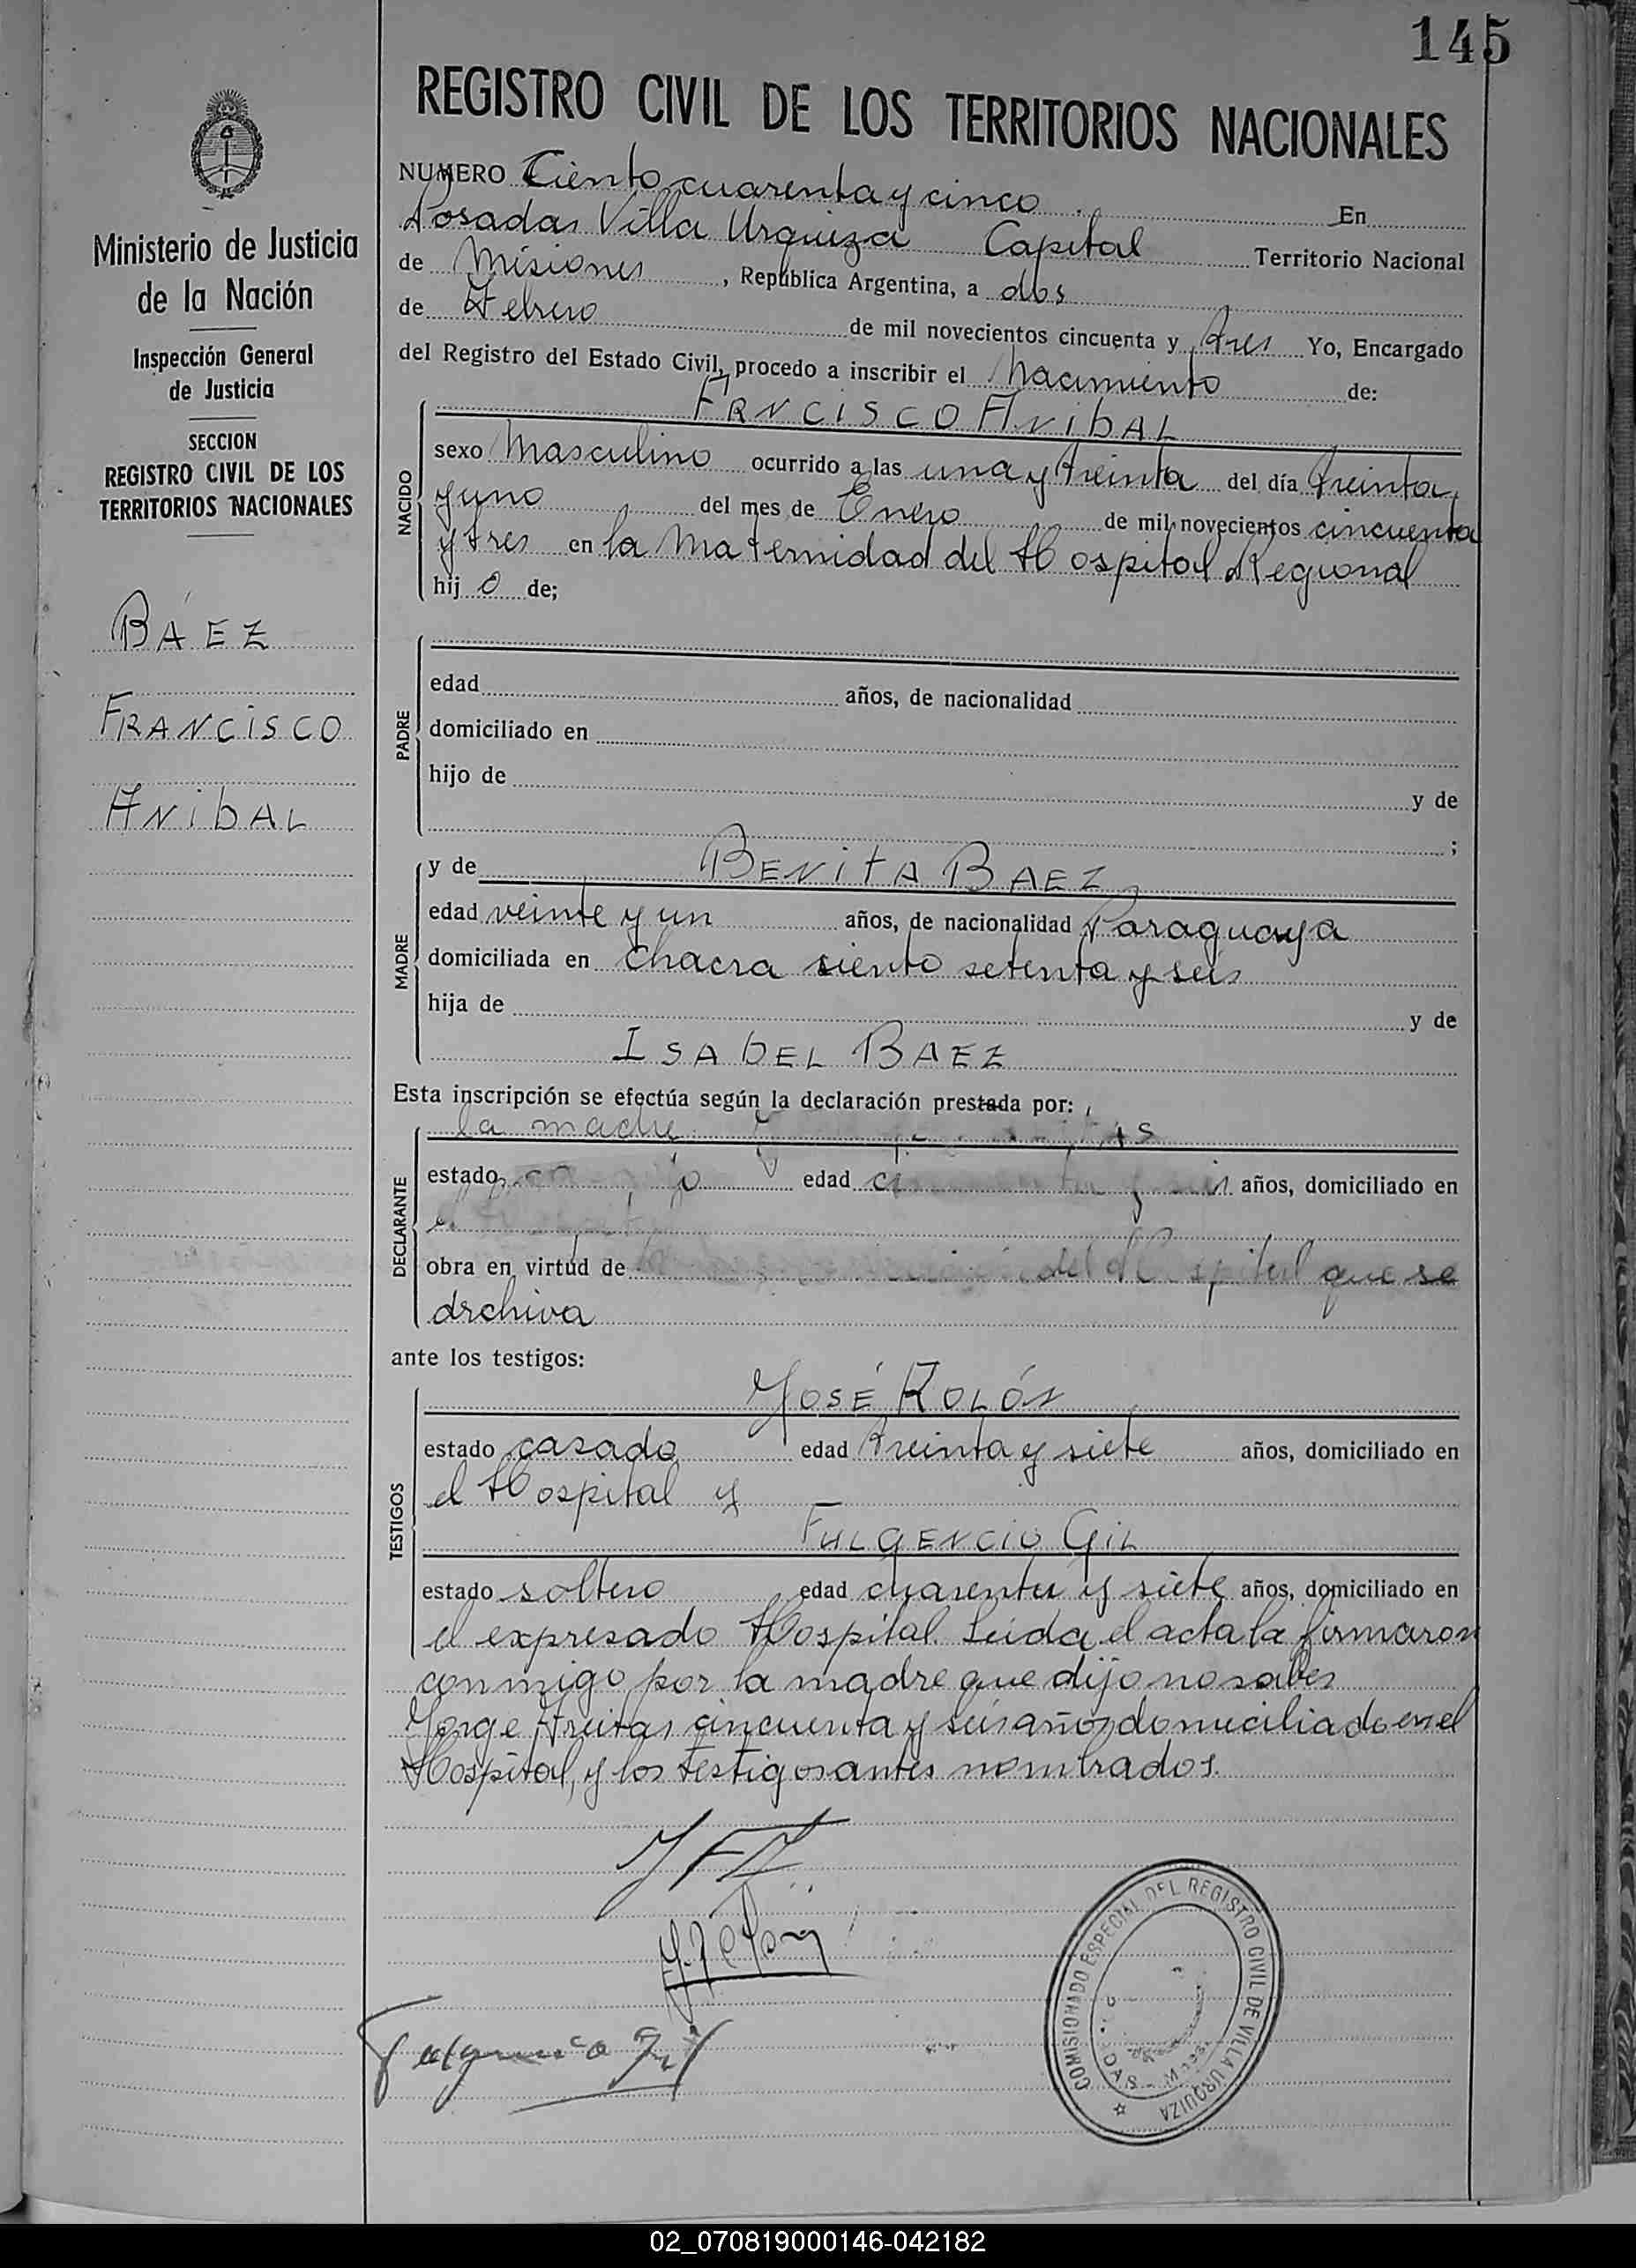 145
REGISTRO CIVIL DE LOS TERRITORIOS NACIONALES
Ministerio de Justicia
de la Nación
Inspección General
de Justicia
SECCION
REGISTRO CIVIL DE LOS
TERRITORIOS NACIONALES
BÁEZ
FRANCISCO
ANIBAL
NUMERO Ciento cuarenta y cinco En
Posadas Villa Urquiza Capital Territorio Nacional
de Misiones, República Argentina, a dos
de Febrero de mil novecientos cincuenta y tres Yo, Encargado
del Registro del Estado Civil, procedo a inscribir el Nacimiento de:
NACIDO
FRNCISCO ANIBAL
sexo Masculino ocurrido a las una y treinta del día treinta
y uno del mes de Enero de mil novecientos cincuenta
y tres en la Maternidad del Hospital Regional
hij o de;
PADRE
edad años, de nacionalidad
domiciliado en
hijo de y de
;
MADRE
y de BENITA BAEZ
edad veinte y un años, de nacionalidad Paraguaya
domiciliada en Chacra siento setenta y seis
hija de y de
ISABEL BAEZ
Esta inscripción se efectúa según la declaración prestada por:
DECLARANTE
la madre
estado edad años, domiciliado en
obra en virtud de del Hospital que se
archiva
ante los testigos:
TESTIGOS
JOSÉ ROLÓN
estado casado edad treinta y siete años, domiciliado en
el Hospital y
FULGENCIO GIL
estado soltero edad cuarenta y siete años, domiciliado en
el expresado Hospital. Leida el acta la firmaron
conmigo por la madre que dijo no saber
Jorge Freitas cincuenta y seis años domiciliado en el
Hospital, y los testigos antes nombrados.
Fulgencio Gil
COMISIONADO ESPECIAL DEL REGISTRO CIVIL DE VILLA URQUIZA
02_070819000146-042182